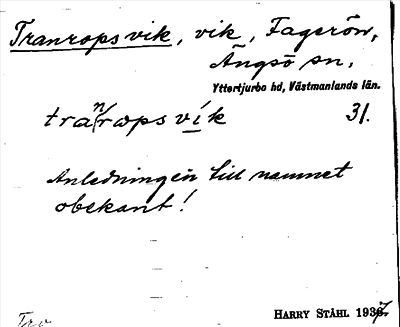 Tranropsvik, vik, Fagerön,
Ängsö sn,
Yttertjurbo hd, Västmanlands län.
tranropsvík 31.
Anledningen till namnet
obekant!
HARRY STÅHL 1937